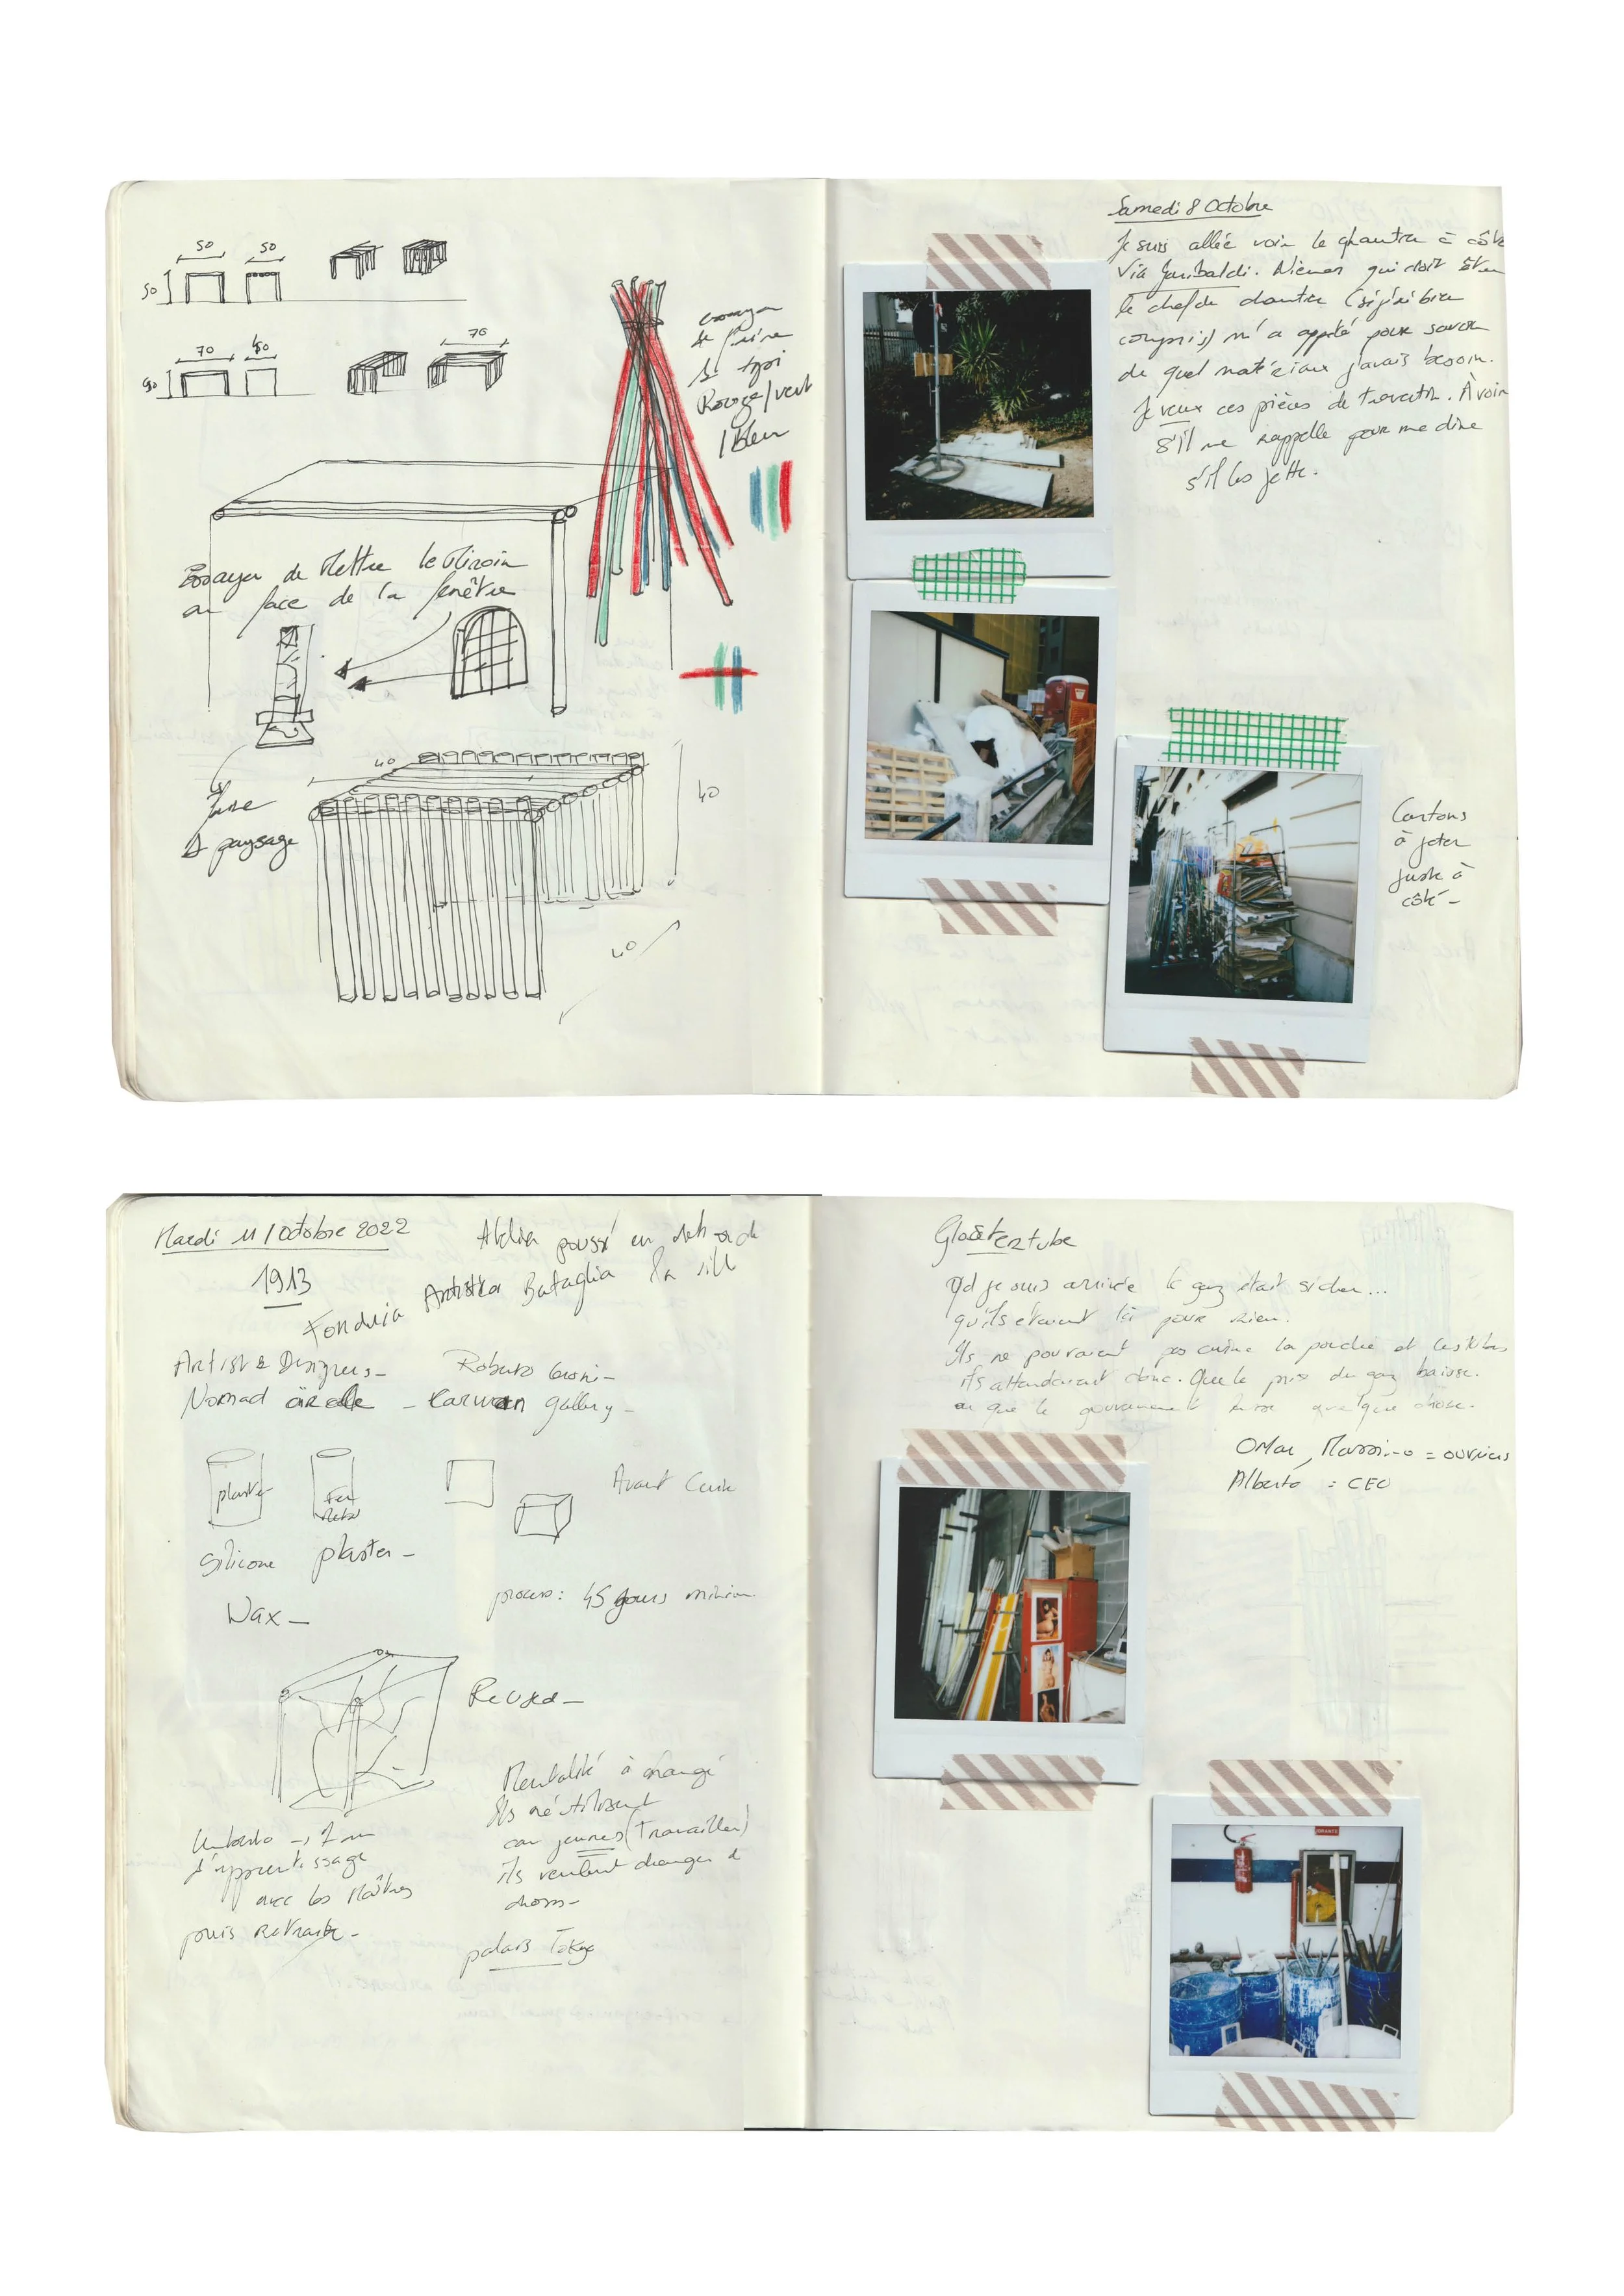 50 50
50
70 40
70
essayer
de faire
1 tipi
Rouge/vert
/Bleu
Essayer de Mettre le Miroir
en face de la fenêtre
faire
1 paysage
40
40
40
Samedi 8 Octobre
Je suis allée voir le chantier à côté
Via Garibaldi. qui doit être
le chef de chantier (si j'ai bien
compris) m'a appelé pour savoir
de quel matériaux j'avais besoin.
Je veux ces pièces de travertin. À voir
s'il me rappelle pour me dire
s'il les jette.
Cartons
à jeter
juste à
côté -
Mardi 11/Octobre 2022
1913
Atelier poussé en dehors de
la ville
Fonderia Artistica Bataglia
Artist & Designers -
Roberto
Nomad circle - Carwan gallery -
plaster
Silicone plaster -
Avant Cuire
process: 45 jours minimum
Wax -
Reused -
Umberto -
d'apprentissage
avec les Maîtres
puis Retraite -
Mentalité à changé
Ils réutilisent
car jeunes (Travailler)
ils veulent changer
choses -
palais Tokyo
Qd je suis arrivée le gaz était si cher...
qu'ils étaient là pour rien.
Ils ne pouvaient pas cuire la poudre et les tubes
ils attendaient donc. Que le prix du gaz baisse.
ou que le gouvernement fasse quelque chose.
Omar, Massimo = ouvriers
Alberto = CEO
IDRANTE